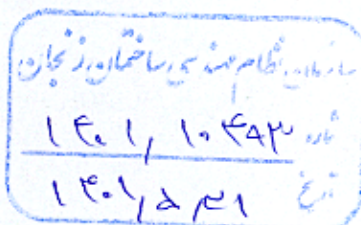 سازمان نظام مهندسی ساختمان زنجان
شماره ۱۴۰۱/۱۰۴۹۳
تاریخ ۱۴۰۱/۵/۳۱